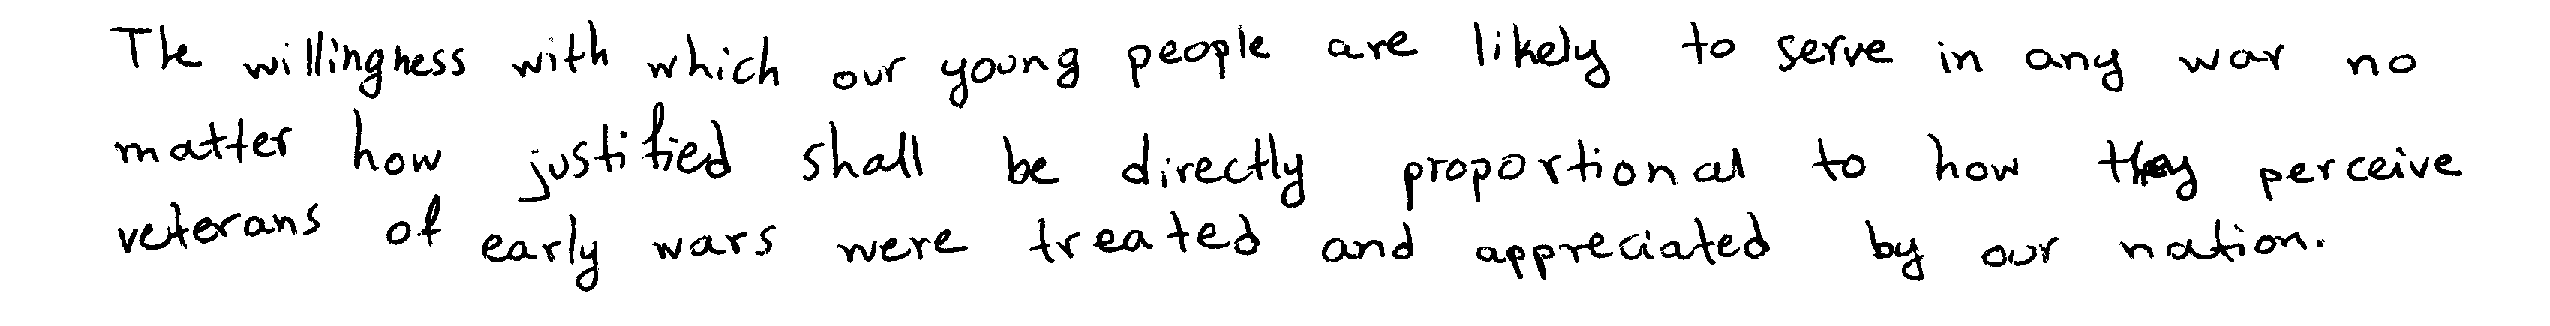 The willingness with which our young people are likely to serve in any war no
matter how justified shall be directly proportional to how they perceive
veterans of early wars were treated and appreciated by our nation.